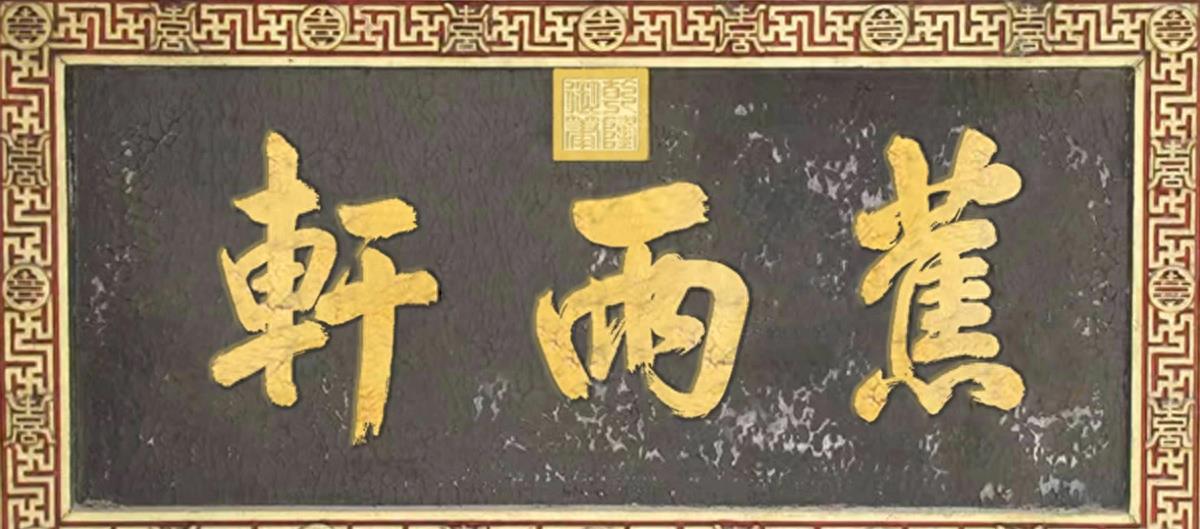 蕉雨軒
乾隆御筆